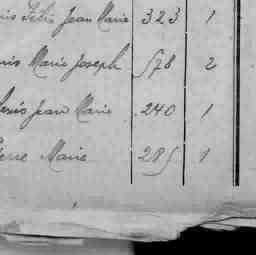 Félix Jean Marie 323 1
Marie Joseph 578 2
Jean Marie 240 1
Marie 285 1